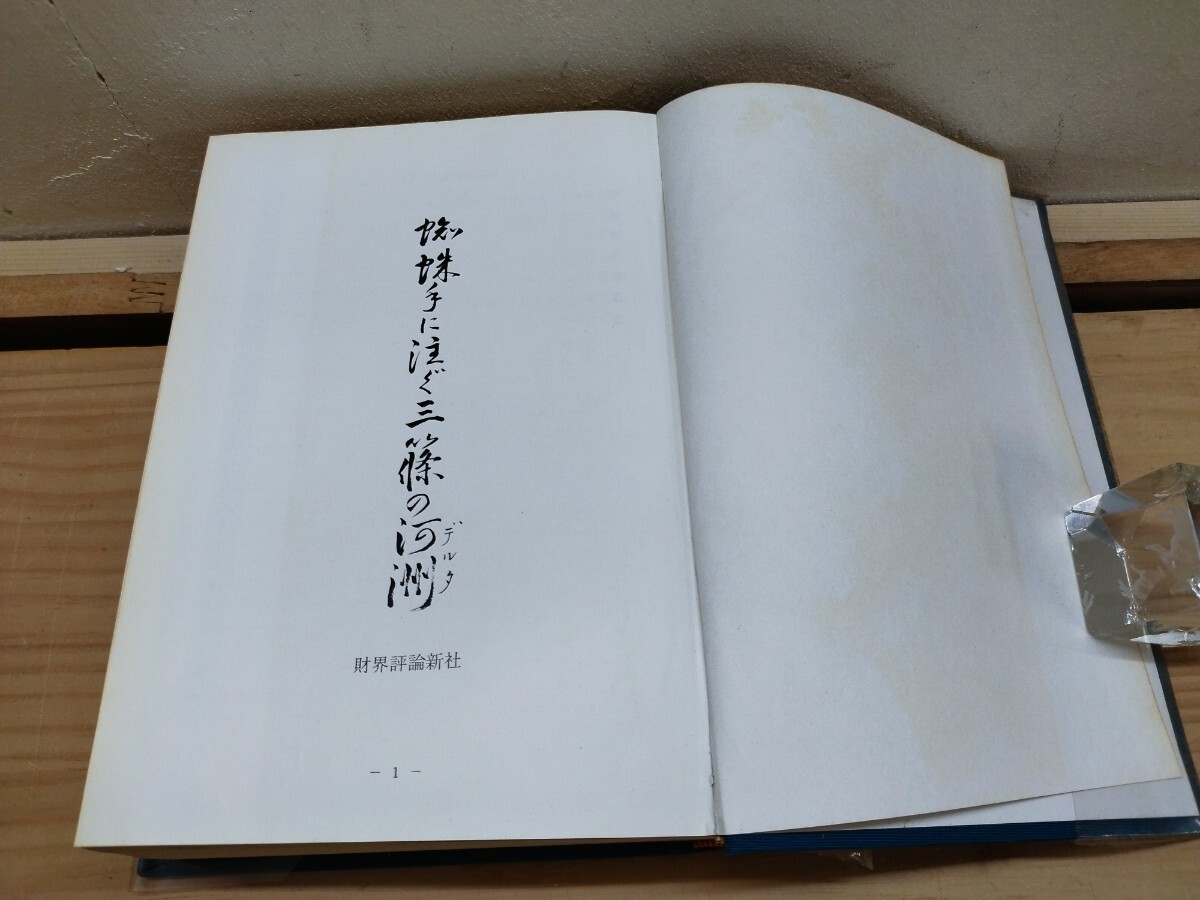 蜘蛛手に注ぐ三篠の河洲
デルタ
財界評論新社
− 1 −